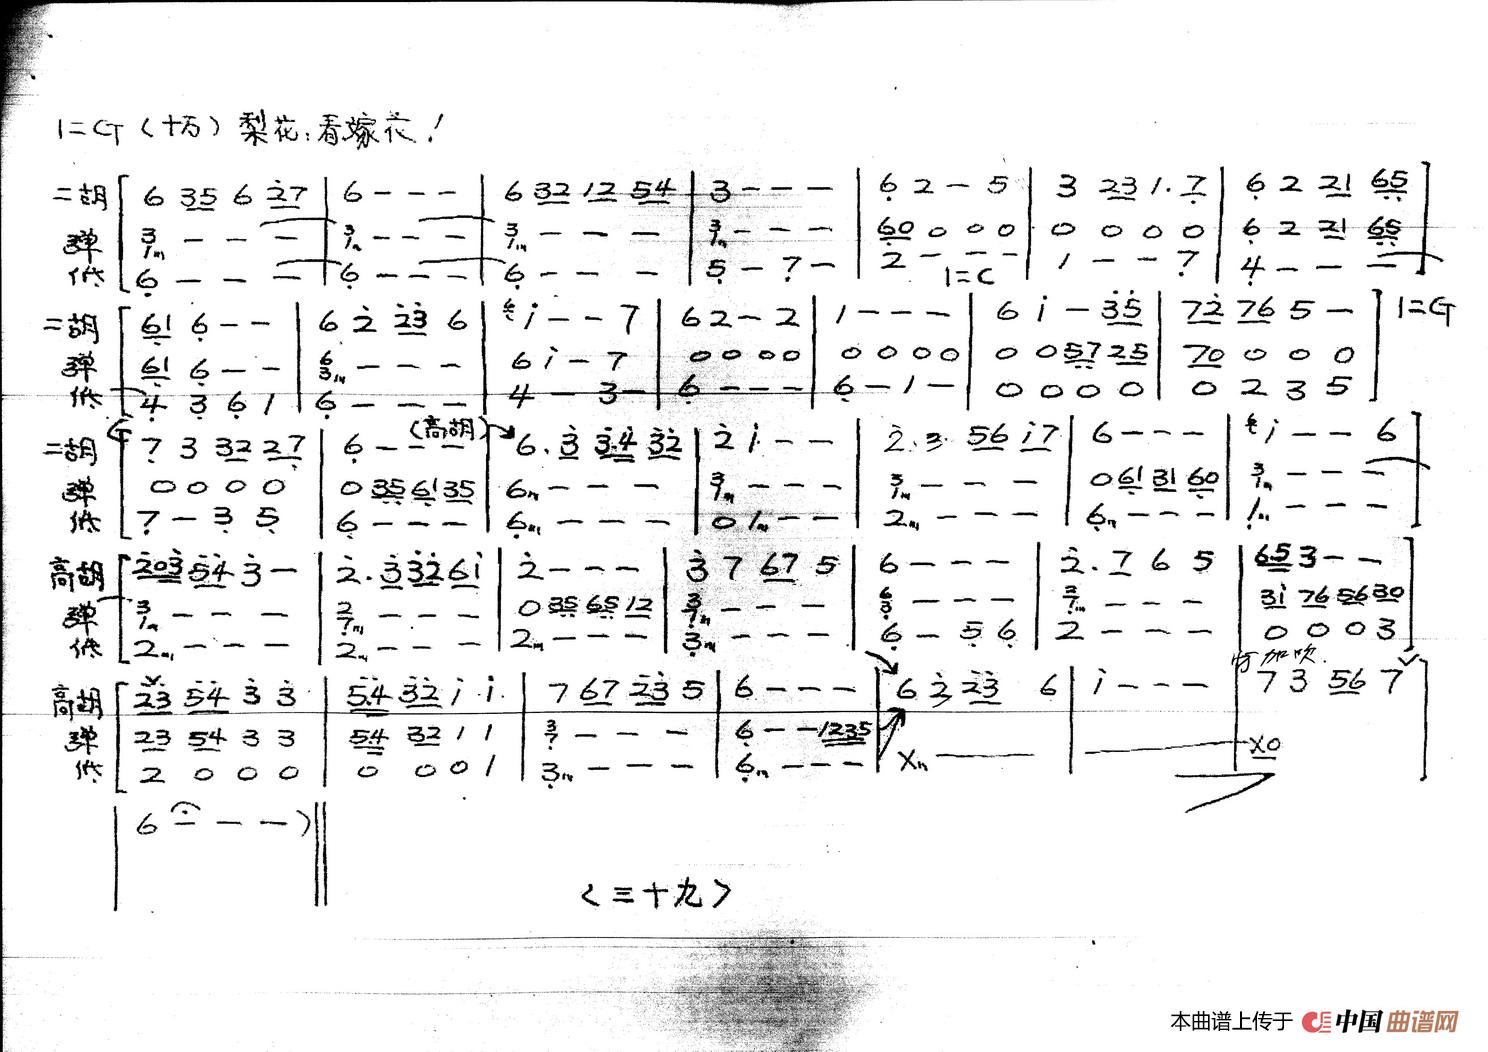 1=G（十万）梨花：看嫁衣！
二胡 6 35 6 27 | 6 - - - | 6 32 12 54 | 3 - - - | 6 2 - 5 | 3 23 1. 7 | 6 2 21 65
弹 3/1 - - - | 3/1 - - - | 3/1 - - - | 3/1 - - - | 60 0 0 0 | 0 0 0 0 | 6 2 21 65
低 6 - - - | 6 - - - | 6 - - - | 5 - 7 - | 2 - - - | 1 - - 7 | 4 - - -
1=C
二胡 61 6 - - | 6 2 23 6 | i - - 7 | 6 2 - 2 | 1 - - - | 6 i - 35 | 72 76 5 - 1=G
弹 61 6 - - | 6/3 - - - | 6 i - 7 | 0 0 0 0 | 0 0 0 0 | 0 0 57 25 | 70 0 0 0
低 4 3 6 1 | 6 - - - | 4 - 3 - | 6 - - - | 6 - 1 - | 0 0 0 0 | 0 2 3 5
二胡 7 3 32 27 | 6 - - - （高胡） 6. 3 3.4 32 | 2 i - - | 2. 3 56 i7 | 6 - - - | i - - 6
弹 0 0 0 0 | 0 35 61 35 | 6 - - - | 3/1 - - - | 3/1 - - - | 0 61 31 60 | 3/1 - - -
低 7 - 3 5 | 6 - - - | 6 - - - | 0 1 - - | 2 - - - | 6 - - - | 1 - - -
高胡 203 54 3 - | 2. 3 32 6i | 2 - - - | 3 7 67 5 | 6 - - - | 2. 7 6 5 | 65 3 - -
弹 3/1 - - - | 2/7 - - - | 0 35 65 12 | 3/7 - - - | 6/3 - - - | 2/7 - - - | 3i 76 56 30
低 2 - - - | 2 - - - | 2 - - - | 3 - - - | 6 - 5 6 | 2 - - - | 0 0 0 3
加吹
高胡 23 54 3 3 | 5.4 32 i i | 7 67 23 5 | 6 - - - | 6 2 23 6 | i - - - | 7 3 56 7
弹 23 54 3 3 | 54 32 1 1 | 3/7 - - - | 6 - - 1235
低 2 0 0 0 | 0 0 0 1 | 3 - - - | 6 - - - | X X0
6 - - - ）
〈三十九〉
本曲谱上传于 中国曲谱网